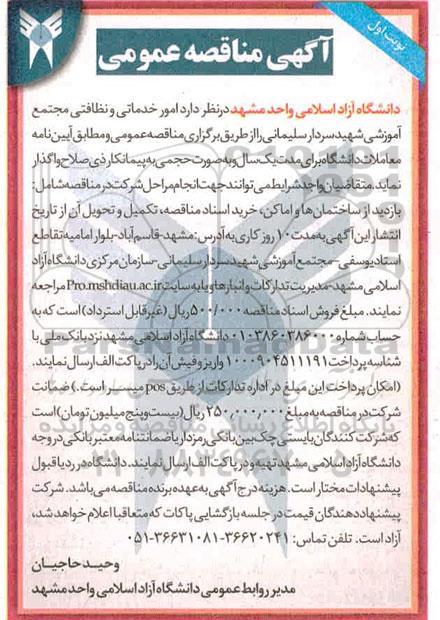 نوبت اول
آگهی مناقصه عمومی
دانشگاه آزاد اسلامی واحد مشهد در نظر دارد امور خدماتی و نظافتی مجتمع
آموزشی شهید سردار سلیمانی را از طریق برگزاری مناقصه عمومی و مطابق آیین نامه
معاملات دانشگاه برای مدت یک سال و به صورت حجمی به پیمانکار ذی صلاح واگذار
نماید. متقاضیان واجد شرایط می توانند جهت انجام مراحل شرکت در مناقصه شامل:
بازدید از ساختمان ها و اماکن، خرید اسناد مناقصه، تکمیل و تحویل آن از تاریخ
انتشار این آگهی به مدت ۱۰ روز کاری به آدرس: مشهد-قاسم آباد-بلوار امامیه تقاطع
استاد یوسفی-مجتمع آموزشی شهید سردار سلیمانی-سازمان مرکزی دانشگاه آزاد
اسلامی مشهد-مدیریت تدارکات و انبارها و یا به سایت Pro.mshdiau.ac.ir مراجعه
نمایند. مبلغ فروش اسناد مناقصه ۵۰۰/۰۰۰ ریال (غیر قابل استرداد) است که به
حساب شماره دانشگاه آزاد اسلامی مشهد نزد بانک ملی با
شناسه پرداخت واریز و فیش آن را در پاکت الف ارسال نمایند.
(امکان پرداخت این مبلغ در اداره تدارکات از طریق pos میسر است.) ضمانت
شرکت در مناقصه به مبلغ ۲۵۰,۰۰۰,۰۰۰ ریال (بیست و پنج میلیون تومان) است
که شرکت کنندگان بایستی چک بین بانکی رمزدار یا ضمانتنامه معتبر بانکی در وجه
دانشگاه آزاد اسلامی مشهد تهیه و در پاکت الف ارسال نمایند. دانشگاه در رد یا قبول
پیشنهادات مختار است. هزینه درج آگهی به عهده برنده مناقصه می باشد. شرکت
پیشنهاد دهندگان قیمت در جلسه بازگشایی پاکات که متعاقبا اعلام خواهد شد،
آزاد است. تلفن تماس: ۳۶۶۲۰۲۴۱-۰۵۱-۳۶۶۳۱۰۸۱
وحید حاجیان
مدیر روابط عمومی دانشگاه آزاد اسلامی واحد مشهد